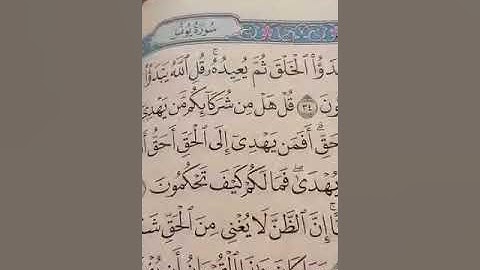 سُورَةُ يُونُسَ
ٱلْخَلْقَ ثُمَّ يُعِيدُهُۥۚ قُلِ ٱللَّهُ يَبْدَؤُا۟
٣٤ قُلْ هَلْ مِن شُرَكَآئِكُم مَّن يَهْدِىٓ
أَفَمَن يَهْدِىٓ إِلَى ٱلْحَقِّ أَحَقُّ
فَمَا لَكُمْ كَيْفَ تَحْكُمُونَ
إِنَّ ٱلظَّنَّ لَا يُغْنِى مِنَ ٱلْحَقِّ